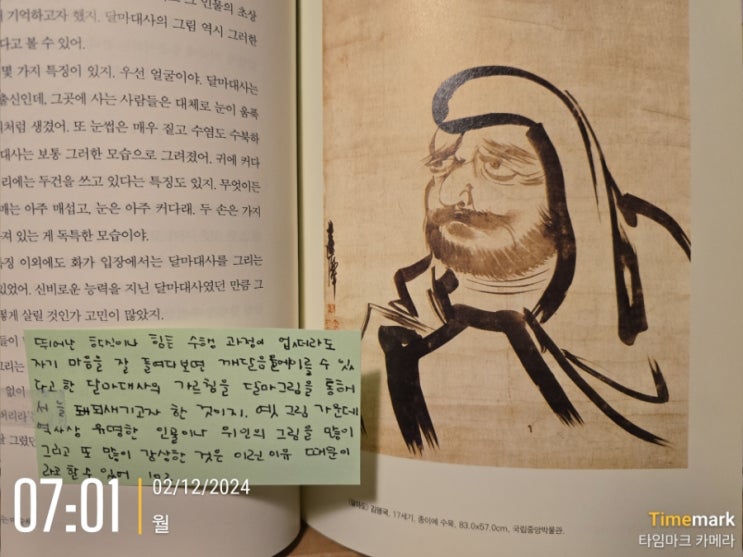 인물의 초상
기억하고자 했지. 달마대사의 그림 역시 그러한
다고 볼 수 있어.
몇 가지 특징이 있지. 우선 얼굴이야. 달마대사는
출신인데, 그곳에 사는 사람들은 대체로 눈이 움푹
처럼 생겼어. 또 눈썹은 매우 짙고 수염도 수북하
대사는 보통 그러한 모습으로 그려졌어. 귀에 커다
리에는 두건을 쓰고 있다는 특징도 있지. 무엇이든
매는 아주 매섭고, 눈은 아주 커다래. 두 손은 가지
져 있는 게 독특한 모습이야.
징 이외에도 화가 입장에서는 달마대사를 그리는
있었어. 신비로운 능력을 지닌 달마대사였던 만큼 그
떻게 살릴 것인가 고민이 많았지.
뛰어난 학식이나 힘든 수행 과정이 없더라도
자기 마음을 잘 들여다보면 깨달음에 이를 수 있
다고 한 달마대사의 가르침을 달마그림을 통해
서 되새기고자 한 것이지. 옛 그림 가운데
역사상 유명한 인물이나 위인의 그림을 많이
그리고 또 많이 감상한 것은 이런 이유 때문이
라고 할 수 있어
〈달마도〉 김명국, 17세기, 종이에 수묵, 83.0x57.0cm, 국립중앙박물관.
07:01
02/12/2024
월
Timemark
타임마크 카메라